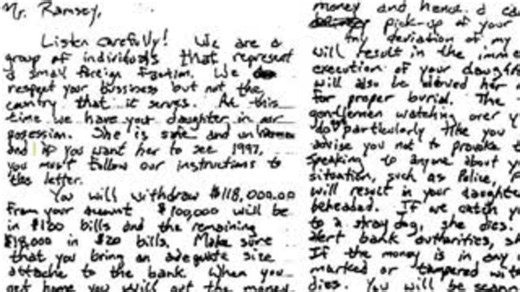 Mr. Ramsey,
Listen carefully! We are a
group of individuals that represent
a small foreign faction. We
respect your bussiness but not the
country that it serves. At this
time we have your daughter in our
posession. She is safe and unharmed
and if you want her to see 1997,
you must follow our instructions to
the letter.
You will withdraw $118,000.00
from your account. $100,000 will be
in $100 bills and the remaining
$18,000 in $20 bills. Make sure
that you bring an adequate size
attache to the bank. When you
get home you will put the money
money and hence a ea
pick-up of your
Any deviation of my
will result in the imme
execution of your daugh
will also be denied her
for proper burial. The
gentlemen watching over y
do particularly like you
advise you not to provoke t
Speaking to anyone about y
situation, such as Police, F
will result in your daughte
beheaded. If we catch y
to a stray dog, she dies.
alert bank authorities, sh
If the money is in any
marked or tampered wit
dies. You will be scann